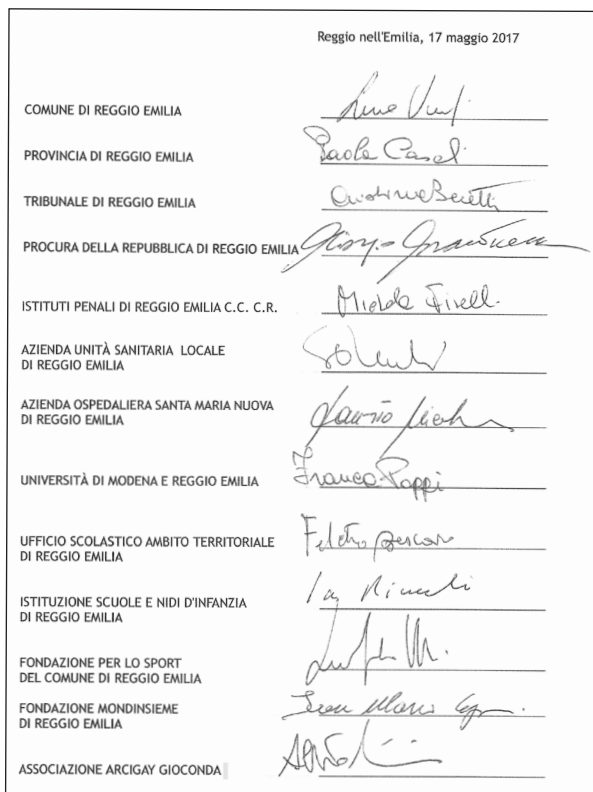 Reggio nell'Emilia, 17 maggio 2017
COMUNE DI REGGIO EMILIA
PROVINCIA DI REGGIO EMILIA Paola Casali
TRIBUNALE DI REGGIO EMILIA
PROCURA DELLA REPUBBLICA DI REGGIO EMILIA
ISTITUTI PENALI DI REGGIO EMILIA C.C. C.R.
AZIENDA UNITÀ SANITARIA LOCALE
DI REGGIO EMILIA
AZIENDA OSPEDALIERA SANTA MARIA NUOVA
DI REGGIO EMILIA
UNIVERSITÀ DI MODENA E REGGIO EMILIA Franca Poppi
UFFICIO SCOLASTICO AMBITO TERRITORIALE
DI REGGIO EMILIA
ISTITUZIONE SCUOLE E NIDI D'INFANZIA
DI REGGIO EMILIA
FONDAZIONE PER LO SPORT
DEL COMUNE DI REGGIO EMILIA
FONDAZIONE MONDINSIEME
DI REGGIO EMILIA
ASSOCIAZIONE ARCIGAY GIOCONDA